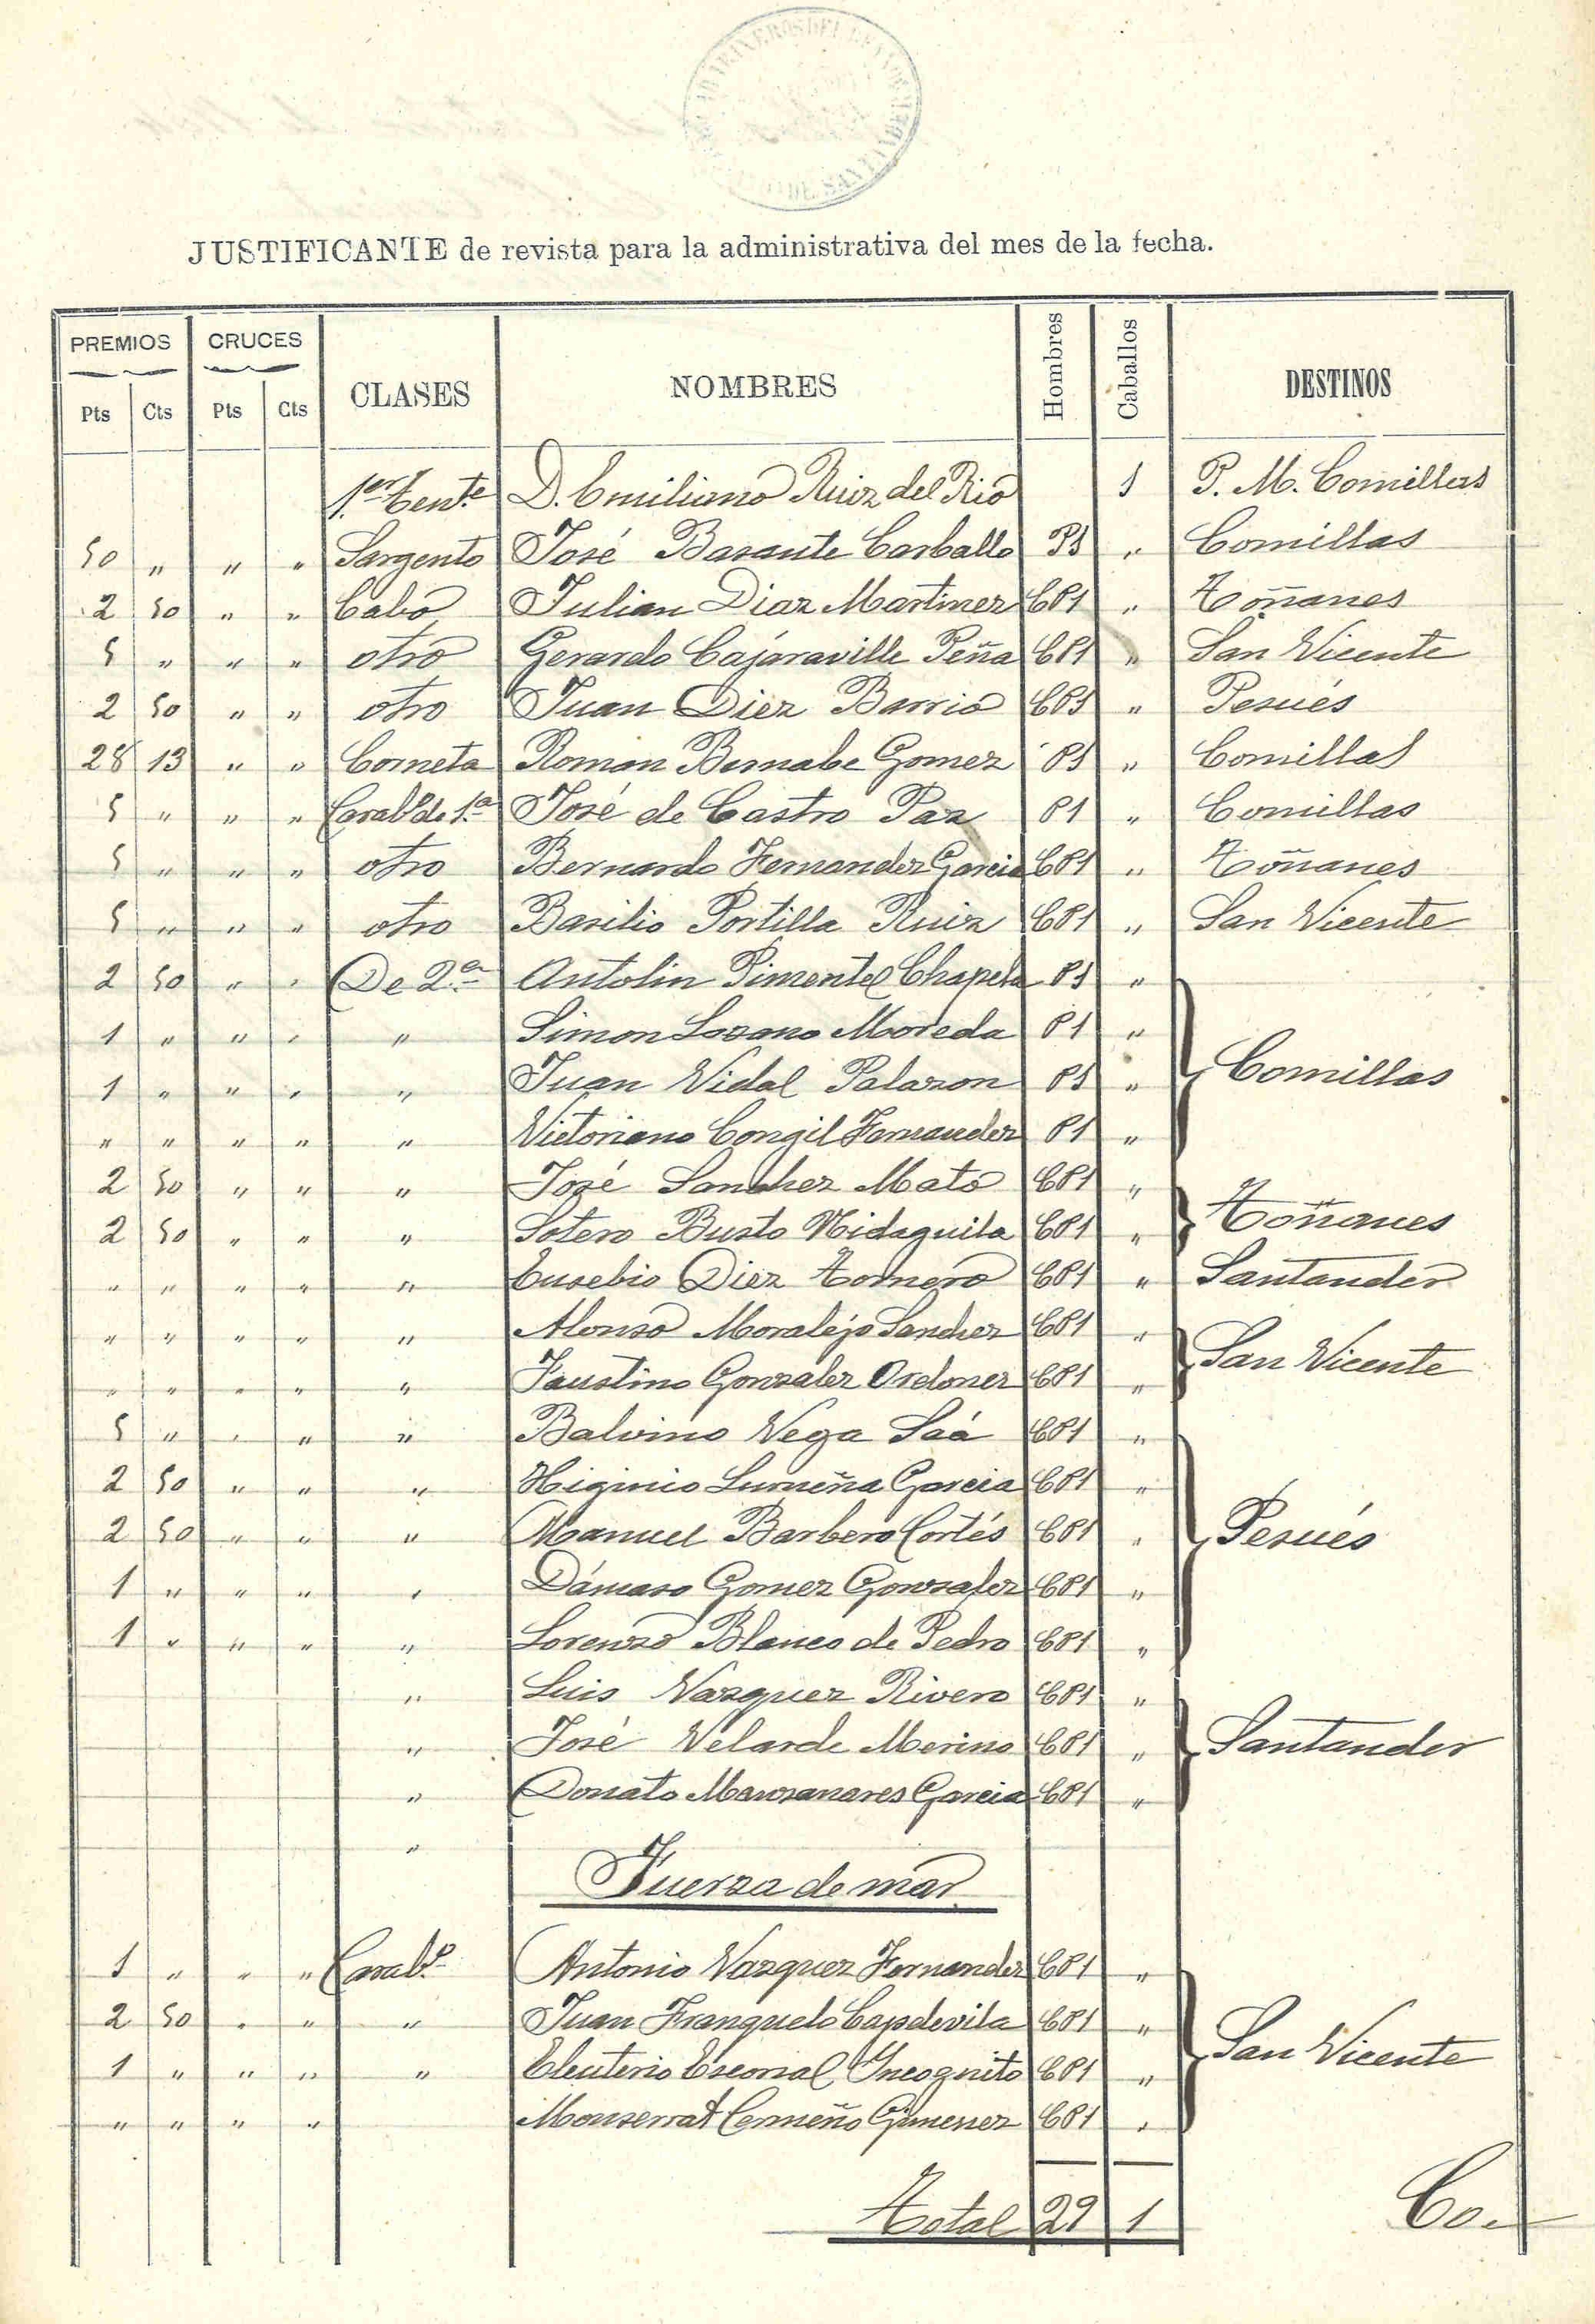 JUSTIFICANTE de revista para la administrativa del mes de la fecha.
PREMIOS CRUCES CLASES NOMBRES Hombres Caballos DESTINOS
Pts Cts Pts Cts
1.er Tente. D. Emiliano Ruiz del Rio 1 P. M. Comillas
50 " " " Sargento José Basante Carballo P1 " Comillas
2 50 " " Cabo Julian Diaz Martinez CP1 " Toñanes
5 " " " otro Gerardo Cajaraville Peña CP1 " San Vicente
2 50 " " otro Juan Diez Barrio CP1 " Pesués
28 13 " " Corneta Roman Bernabe Gomez P1 " Comillas
5 " " " Carab.º de 1.ª José de Castro Paz P1 " Comillas
5 " " " otro Bernardo Fernandez Garcia CP1 " Toñanes
5 " " " otro Basilio Portilla Ruiz CP1 " San Vicente
2 50 " " De 2.ª Antolin Pimentel Chapela P1 "
1 " " " " Simon Lozano Moreda P1 "
1 " " " " Juan Vidal Palazon P1 " Comillas
" " " " " Victoriano Congil Fernandez P1 "
2 50 " " " José Sanchez Mato CP1 "
2 50 " " " Sotero Busto Hidaguila CP1 " Toñanes
" " " " " Eusebio Diez Tornero CP1 " Santander
" " " " " Alonso Moralejo Sanchez CP1 "
" " " " " Faustino Gonzalez Ordoñez CP1 " San Vicente
5 " " " " Balvino Vega Saá CP1 "
2 50 " " " Higinio Lumeña Garcia CP1 "
2 50 " " " Manuel Barbero Cortés CP1 " Pesués
1 " " " " Dámaso Gomez Gonzalez CP1 "
1 " " " " Lorenzo Blanco de Pedro CP1 "
" Luis Vazquez Rivero CP1 "
" José Velarde Merino CP1 " Santander
" Donato Manzanares Garcia CP1 "
"
Fuerza de mar
1 " " " Carab.º Antonio Vazquez Fernandez CP1 "
2 50 " " " Juan Franquelo Capdevila CP1 "
1 " " " " Eleuterio Escorial Incognito CP1 " San Vicente
" " " " Monserrat Cermeño Gimenez CP1 "
Total 29 1
Co